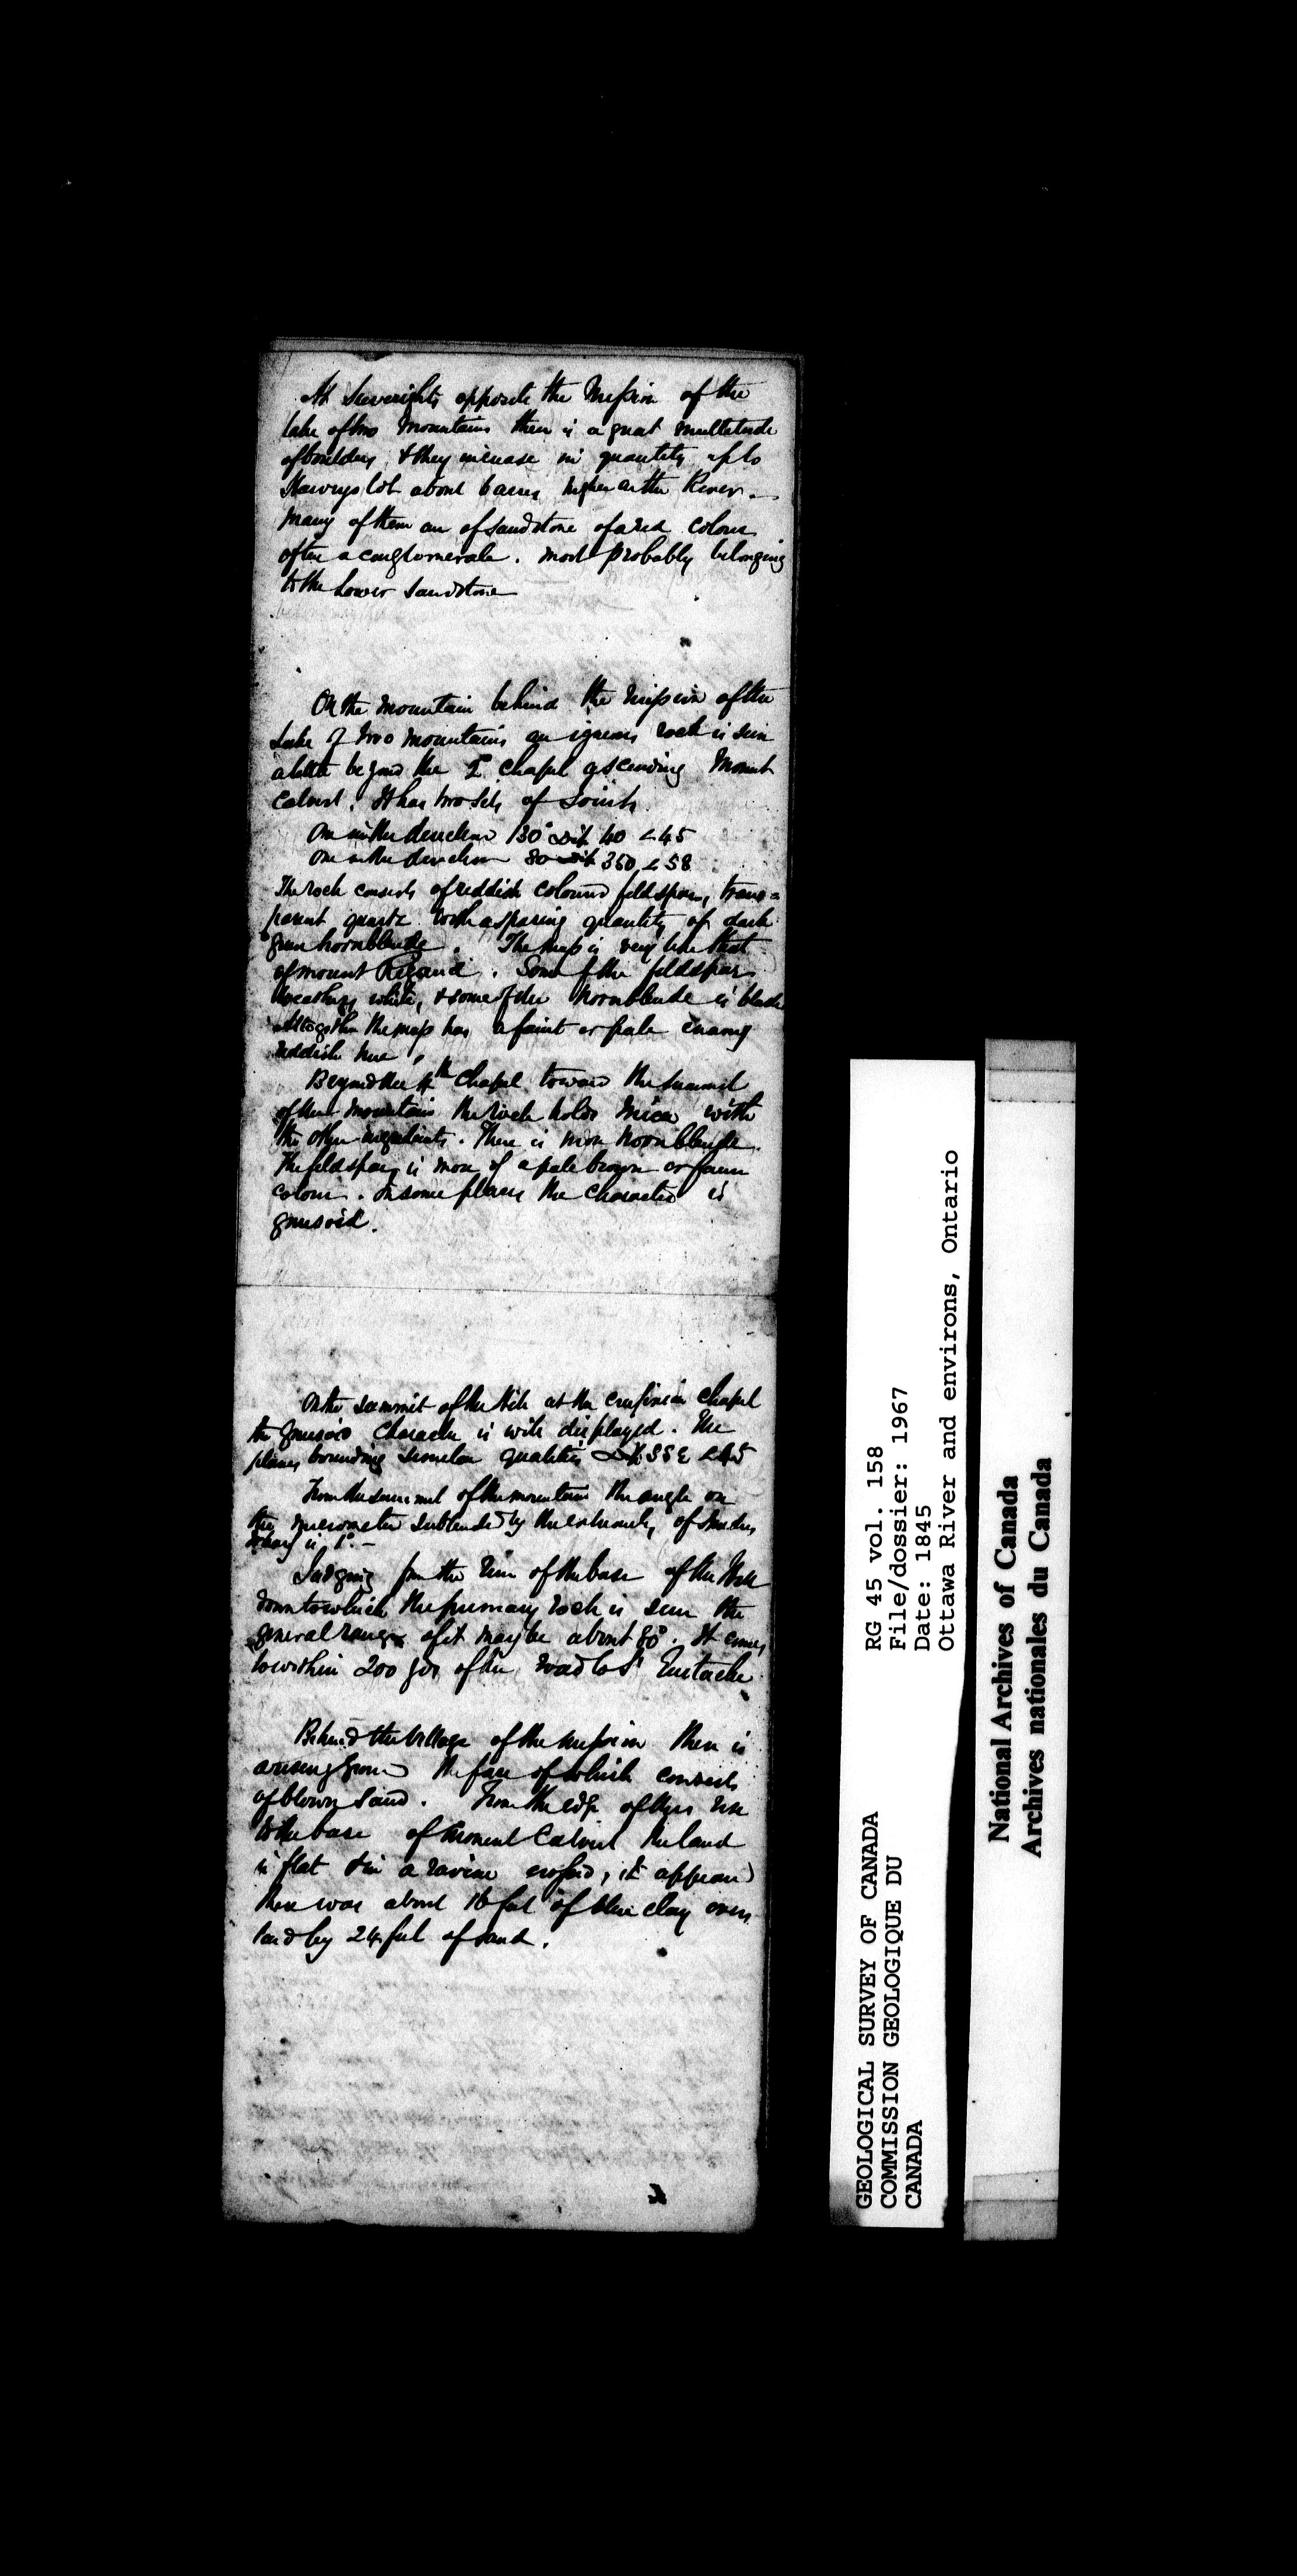 At Severights opposite the Mission of the
Lake of two Mountains there is a great multitude
of boulders & they increase in quantity up to
lot about 6 acres higher on the River.
Many of them are of sandstone of a red colour
often a conglomerate. most probably belonging
to the lower sandstone
On the mountain behind the Mission of the
Lake of two mountains an igneous rock is seen
a little beyond the 2d chapel ascending Mount
Calvert. It has two sets of joints
One in the direction 130° dip 40 < 45
One in the direction 80 dip 350 < 58
The rock consists of reddish coloured feldspar, trans=
parent quartz with a sparing quantity of dark
green hornblende. The mass is very like that
of mount Rigaud. Some of the feldspar
weathers white, & some of the hornblende is black
Altogether the mass has a faint or pale
reddish hue.
Beyond the 4th Chapel toward the summit
of the mountain the rock holds mica with
the other ingredients. There is more hornblende.
The feldspar is more of a pale brown or fawn
colour. In some places the character is
gneisoid.
On the summit of the Hill at the chapel
the gneisoid character is well displayed. The
planes bounding similar qualities dip 355 < 45
From the summit of the mountain the angle on
the micrometer subtended by the extremity of
wharf is 1°.
Judging from the line of the base of the Hill
down to which the primary rock is seen the
general range of it may be about 80°. It comes
to within 200 yds of the road to St Eustache
Behind the village of the mission there is
a rising ground the face of which consists
of blown sand. From the edge of this rise
to the base of mount Calvert the land
is flat & in a ravine crossed, it appeared
there was about 16 feet of blue clay over
laid by 24 feet of sand.
GEOLOGICAL SURVEY OF CANADA
COMMISSION GEOLOGIQUE DU
CANADA
RG 45 vol. 158
File/dossier: 1967
Date: 1845
Ottawa River and environs, Ontario
National Archives of Canada
Archives nationales du Canada